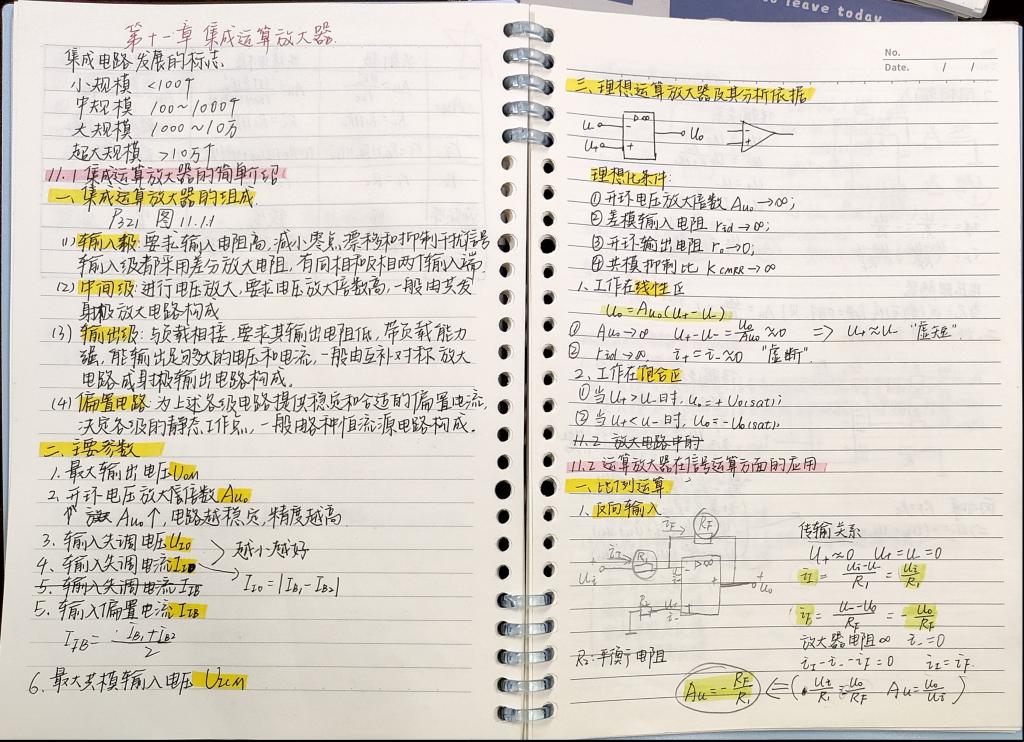 第十一章 集成运算放大器.
集成电路发展的标志.
小规模 <100个
中规模 100~1000个
大规模 1000~10万
超大规模 >10万个
11.1 集成运算放大器的简单介绍
一、集成运算放大器的组成.
P321 图11.1.1
(1) 输入级:要求输入电阻高,减小零点漂移和抑制干扰信号
输入级都采用差分放大电阻,有同相和反相两个输入端.
(2) 中间级:进行电压放大,要求电压放大倍数高,一般由共发
射极放大电路构成
(3) 输出级:与负载相接,要求其输出电阻低,带负载能力
强,能输出足够大的电压和电流,一般由互补对称放大
电路或射极输出电路构成。
(4) 偏置电路 为上述各级电路提供稳定和合适的偏置电流,
决定各级的静态工作点,一般由各种恒流源电路构成.
二、主要参数
1. 最大输出电压UOM
2. 开环电压放大倍数 Auo
Auo↑,电路越稳定,精度越高
3. 输入失调电压UIO
越小越好
4. 输入失调电流IIO
IIO=|IB1-IB2|
5. 输入失调电流IIB
5. 输入偏置电流IIB
IIB= (IB1+IB2)/2
6. 最大共模输入电压 UICM
to leave today
No.
Date. / /
三、理想运算放大器及其分析依据
u- - ▷∞ uo -
u+ + +
理想化条件:
①开环电压放大倍数 Auo→∞;
②差模输入电阻 rid→∞;
③开环输出电阻 ro→0;
④共模抑制比 KCMRR→∞
1. 工作在线性区
uo=Auo(u+-u-)
① Auo→∞ u+-u-=uo/Auo≈0 => u+≈u- "虚短".
② rid→∞. i+=i-≈0 "虚断".
2. 工作在饱合区
①当u+>u-时, uo=+Uo(sat);
②当u+<u-时, uo=-Uo(sat).
11.2 放大电路中的
11.2 运算放大器在信号运算方面的应用
一、比例运算.
1. 反向输入
iF RF
传输关系
iI R1 ▷∞
u+≈0 u+=u-=0
ui u- - + uo
iI= (ui-u-)/R1 = ui/R1
R2 u+ +
iF= (u--uo)/RF = -uo/RF
放大器电阻∞ i-=0
R2:平衡电阻
iI-i--iF=0 iI=iF.
Au=-RF/R1 ⇐( ui/R1=-uo/RF Au=uo/ui )